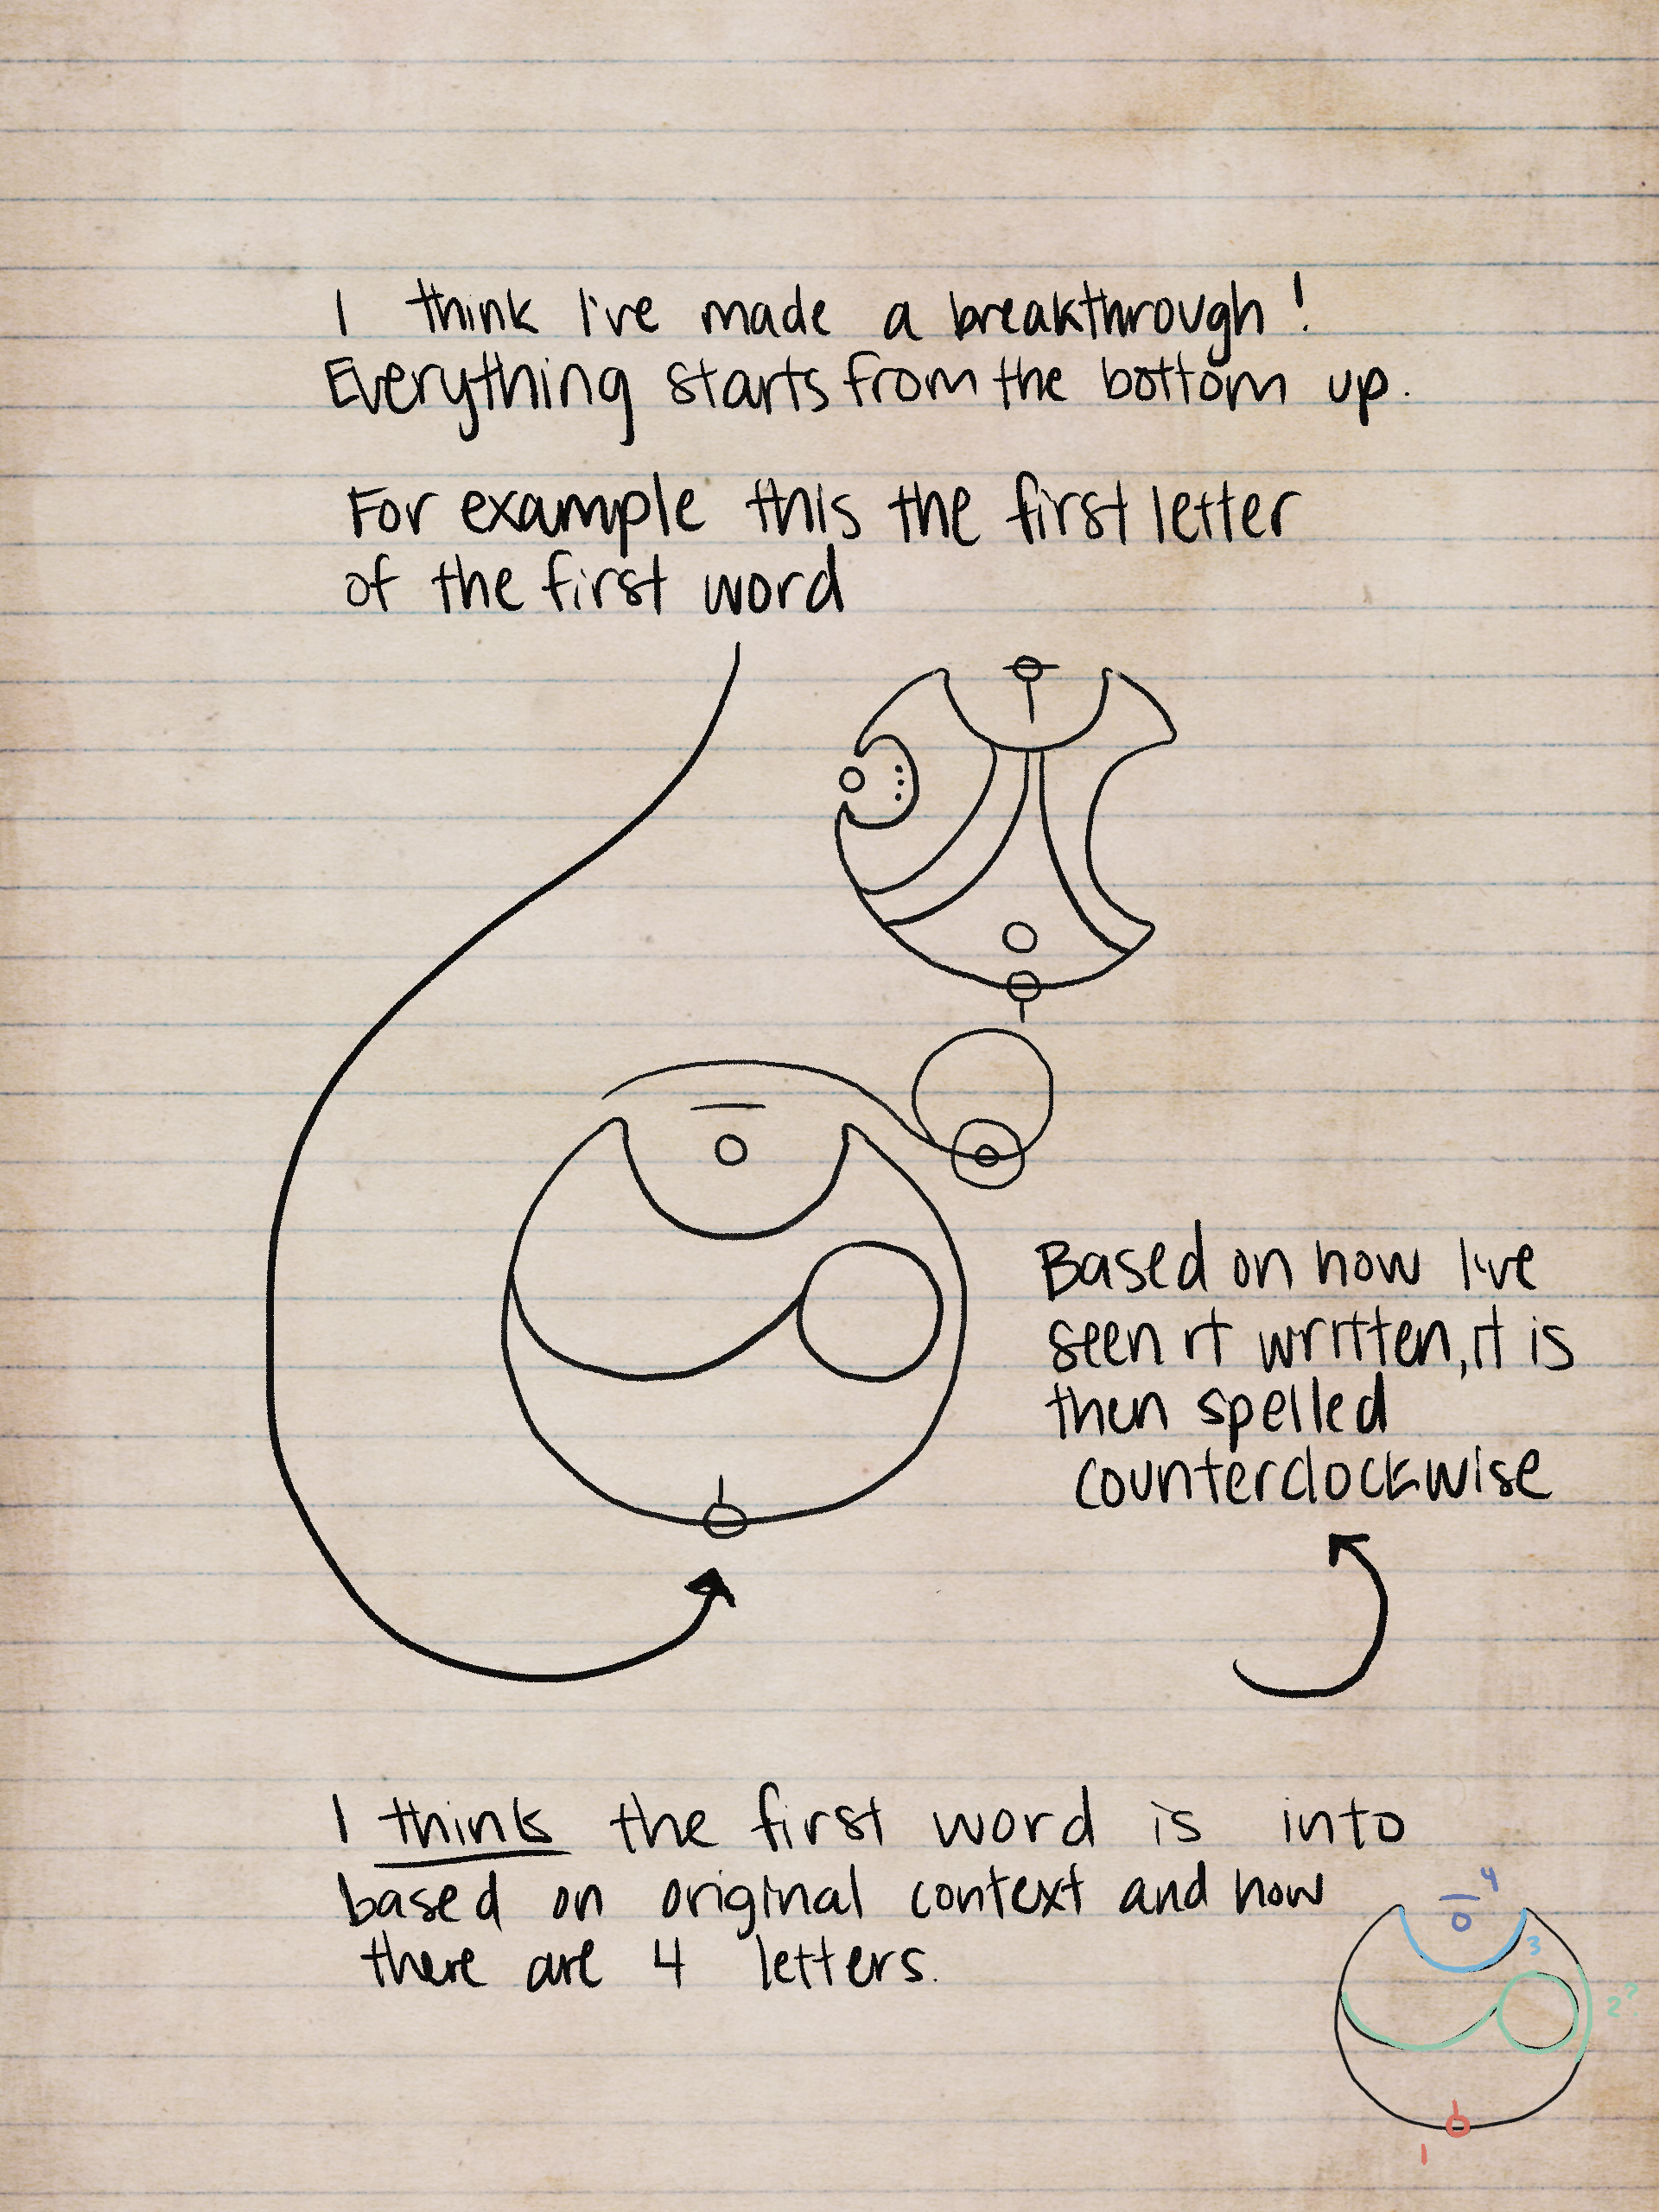 I think I've made a breakthrough!
Everything starts from the bottom up.
For example this the first letter
of the first word
Based on how I've
seen it written, it is
then spelled
counterclockwise
I think the first word is into
based on original context and how
there are 4 letters.
4
3
2?
1